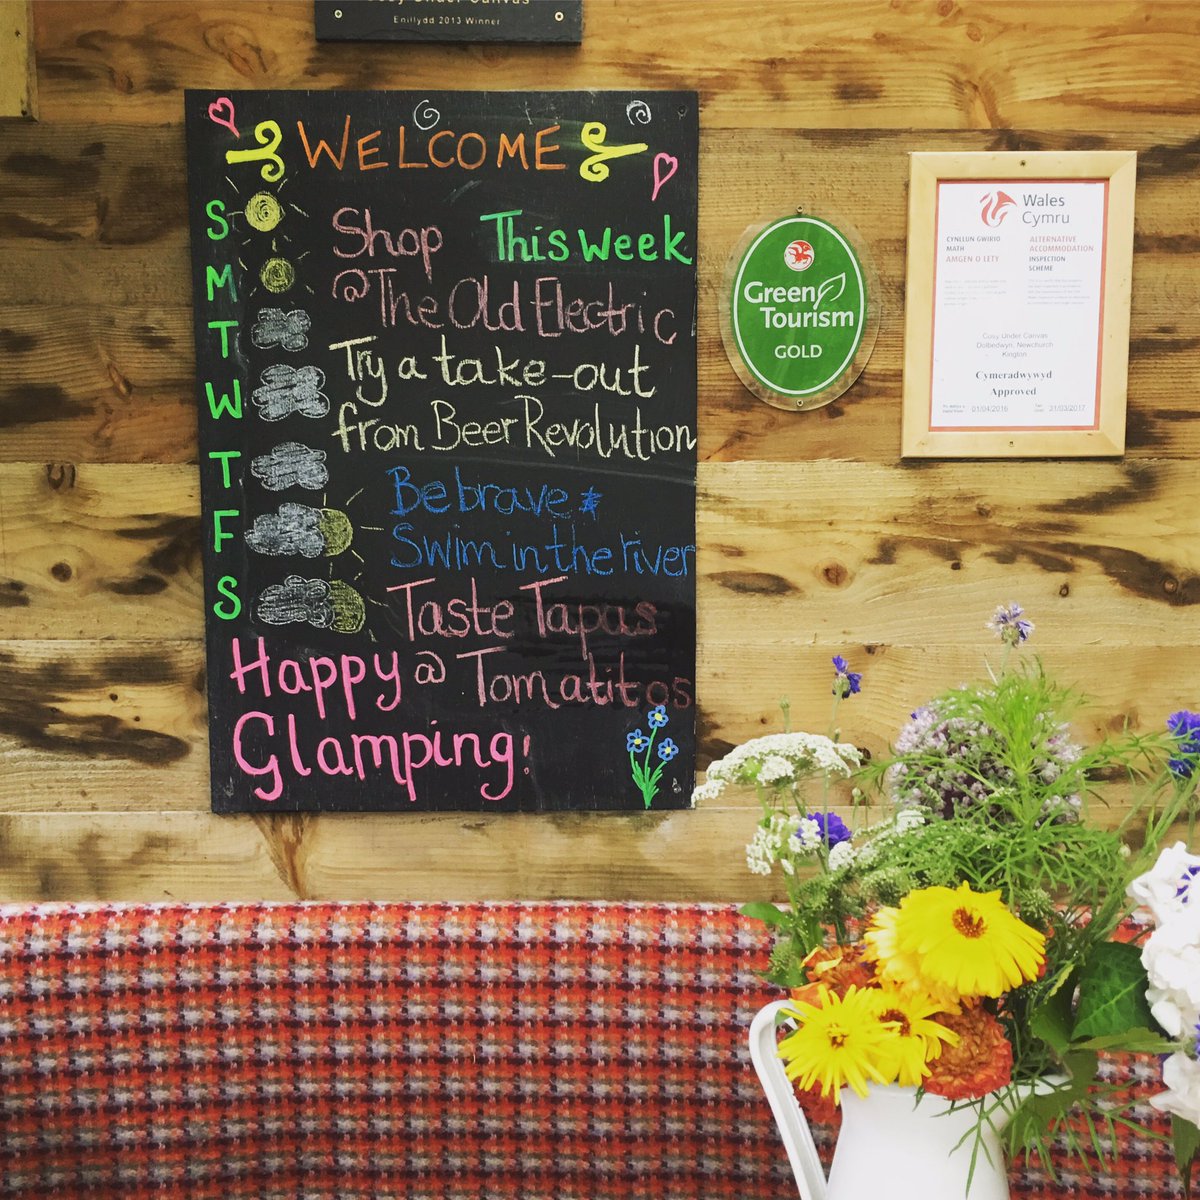 Cosy Under Canvas
Enillydd 2013 Winner
WELCOME
S
M
T
W
T
F
S
This week
Shop
@ The Old Electric
Try a take-out
from Beer Revolution
Be brave &
Swim in the river
Taste Tapas
@ Tomatitos
Happy
Glamping!
Green
Tourism
GOLD
Wales
Cymru
CYNLLUN GWIRIO
MATH
AMGEN O LETY
ALTERNATIVE
ACCOMMODATION
INSPECTION
SCHEME
Cosy Under Canvas
Dolbedwyn, Newchurch
Kington
Cymeradwywyd
Approved
01/04/2016
31/03/2017